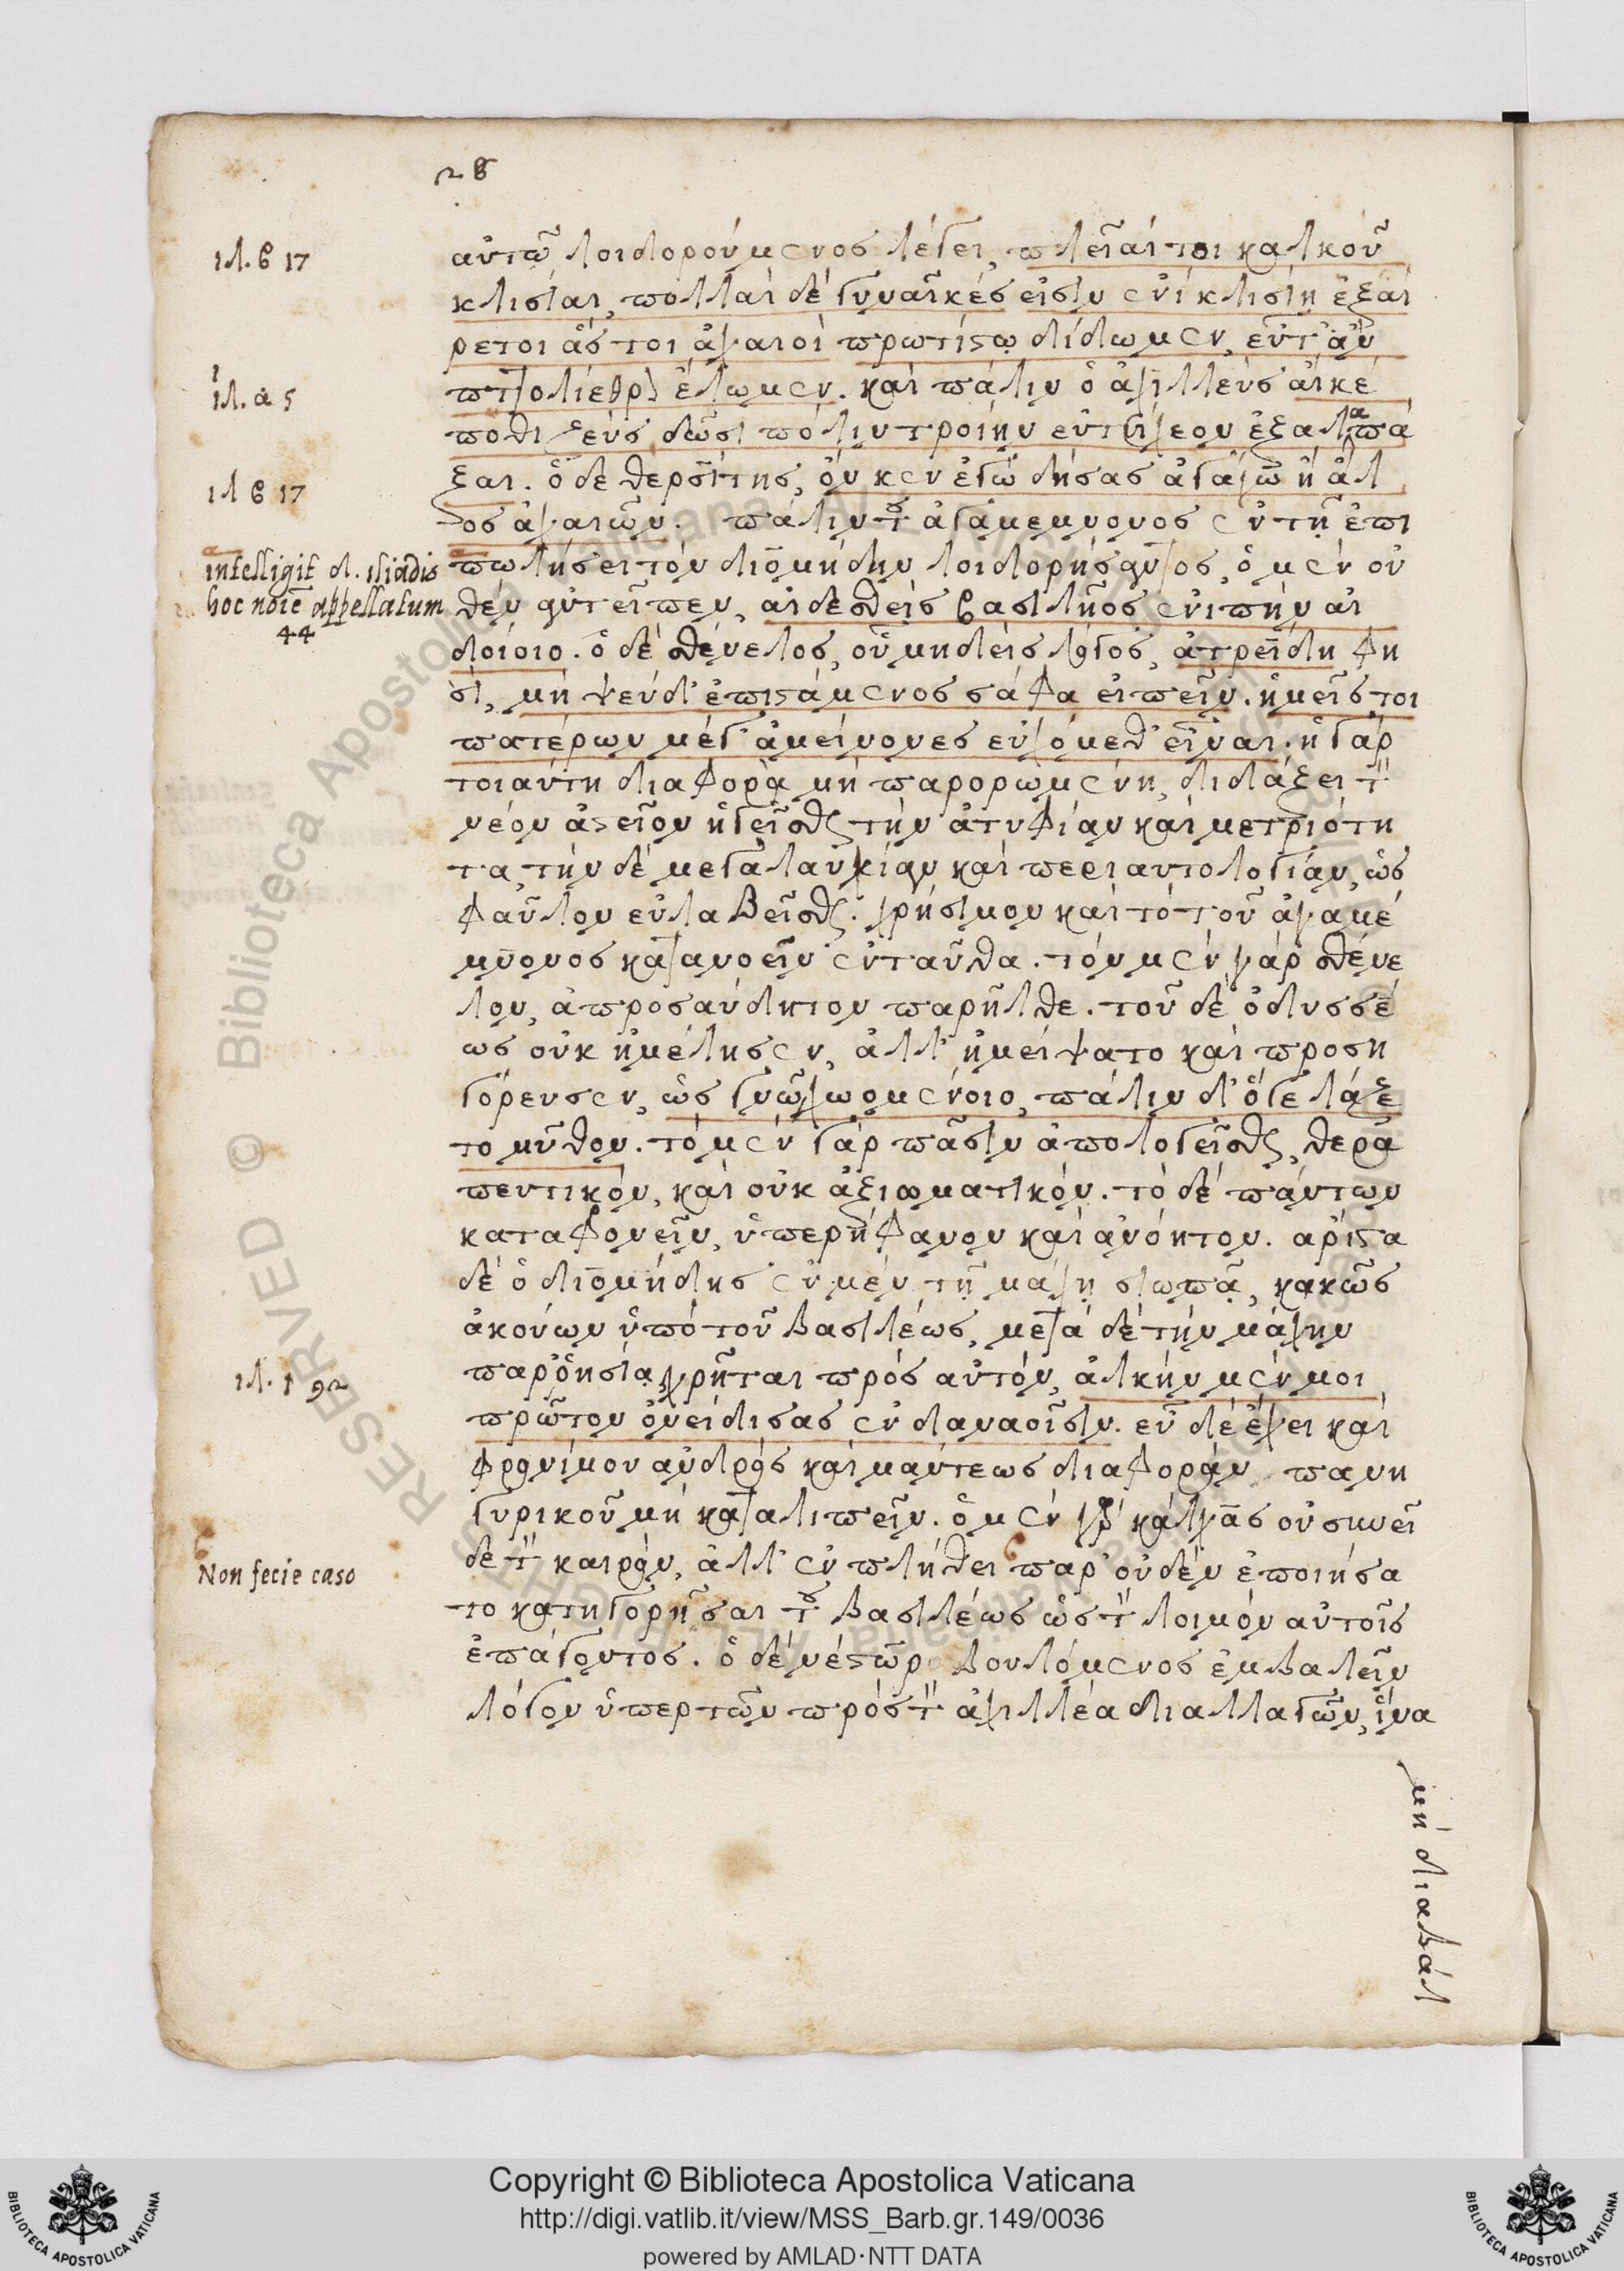 28
ιλ. β 17
αὐτῷ λοιδορούμενος λέγει, πλεῖαί τοι χαλκοῦ
κλισίαι, πολλαὶ δὲ γυναῖκές εἰσιν ἐνὶ κλισίῃ ἐξαί
ρετοι ἅς τοι ἀχαιοὶ πρωτίστῳ δίδωμεν, εὖτ' ἂν
ιλ. α 5
πτολίεθρον ἕλωμεν. καὶ πάλιν ὁ ἀχιλλεύς αἴ κέ
ποθι ζεύς δῶσι πόλιν τροίην εὐτείχεον ἐξαλαπά
ιλ β 17
ξαι. ὁ δὲ θερσίτης, ὅν κεν ἐγὼ δήσας ἀγάγω ἢ ἄλ
λος ἀχαιῶν. πάλιν τοῦ ἀγαμέμνονος ἐν τῇ ἐπι
a intelligit δ. iliadis
hoc noīe appellatum
44
πωλήσει τὸν διομήδην λοιδορήσαντος, ὁ μὲν οὐ
θὲν ἀντεῖπεν, αἰδεσθεὶς βασιλῆος ἐνιπὴν αἰ
δοίοιο. ὁ δὲ σθένελος, οὗ μηδεὶς λόγος, ἀτρείδη φη
σί, μὴ ψεύδ' ἐπιστάμενος σάφα εἰπεῖν. ἡμεῖς τοι
πατέρων μέγ' ἀμείνονες εὐχόμεθ' εἶναι. ἡ γὰρ
τοιαύτη διαφορὰ μὴ παρορωμένη, διδάξει τὸν
νέον ἀστεῖον ἡγεῖσθαι τὴν ἀτυφίαν καὶ μετριότη
τα, τὴν δὲ μεγαλαυχίαν καὶ περιαυτολογίαν, ὡς
φαῦλον εὐλαβεῖσθαι. χρήσιμον καὶ τὸ τοῦ ἀγαμέ
μνονος κατανοεῖν ἐνταῦθα. τὸν μὲν γὰρ σθένε
λον, ἀπροσαύδητον παρῆλθε. τοῦ δὲ ὀδυσσέ
ως οὐκ ἠμέλησεν, ἀλλ' ἠμείψατο καὶ προση
γόρευσεν, ὡς γνῶ χωομένοιο, πάλιν δ' ὅγε λάζε
το μῦθον. τὸ μὲν γὰρ πᾶσιν ἀπολογεῖσθαι, θερα
πευτικὸν, καὶ οὐκ ἀξιωματικόν. τὸ δὲ πάντων
καταφρονεῖν, ὑπερήφανον καὶ ἀνόητον. αρίστα
δὲ ὁ διομήδης ἐν μὲν τῇ μάχῃ σιωπᾷ, κακῶς
ἀκούων ὑπὸ τοῦ βασιλέως, μετὰ δὲ τὴν μάχην
ιλ. ι 92
παῤῥησίᾳ χρῆται πρὸς αὐτόν, ἀλκὴν μέν μοι
πρῶτον ὀνείδισας ἐν δαναοῖσιν. εὖ δὲ ἔχει καὶ
φρονίμου ἀνδρὸς καὶ μάντεως διαφορὰν πανη
γυρικοῦ μὴ καταλιπεῖν. ὁ μὲν γὰρ κάλχας οὐ συνεῖ
Non fecie caso
δε τὸν καιρὸν, ἀλλ' ἐν πλήθει παρ' οὐδὲν ἐποιήσα
το κατηγορῆσαι τοῦ βασιλέως ὡς τὸν λοιμὸν αὐτοῖς
ἐπάγοντος. ὁ δὲ νέστωρ βουλόμενος ἐμβαλεῖν
λόγον ὑπὲρ τῶν πρὸς τὸν ἀχιλλέα διαλλαγῶν, ἵνα
μὴ διαβάλ
Copyright © Biblioteca Apostolica Vaticana
http://digi.vatlib.it/view/MSS_Barb.gr.149/0036
powered by AMLAD·NTT DATA
BIBLIOTECA APOSTOLICA VATICANA
BIBLIOTECA APOSTOLICA VATICANA